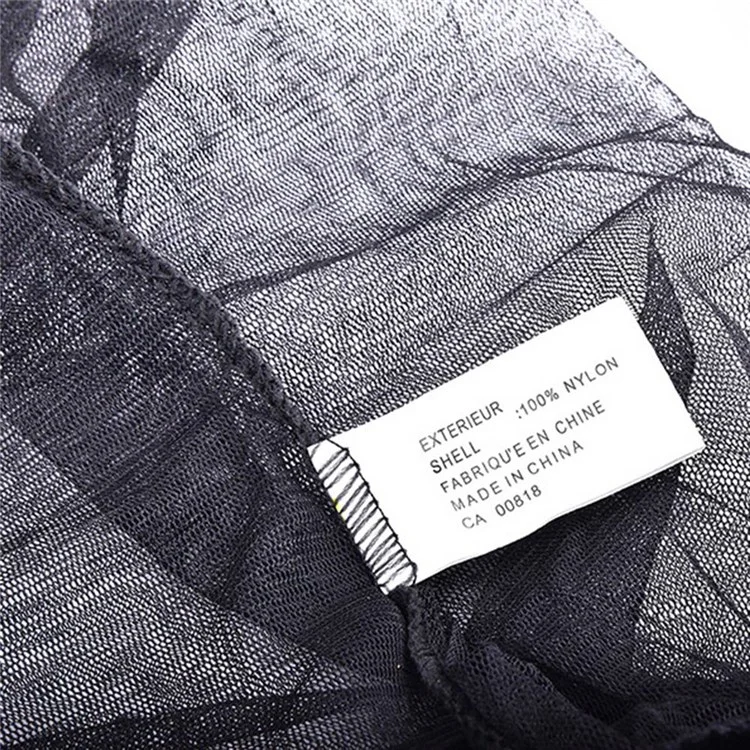 EXTERIEUR
SHELL :100% NYLON
FABRIQU'E EN CHINE
MADE IN CHINA
CA 00818